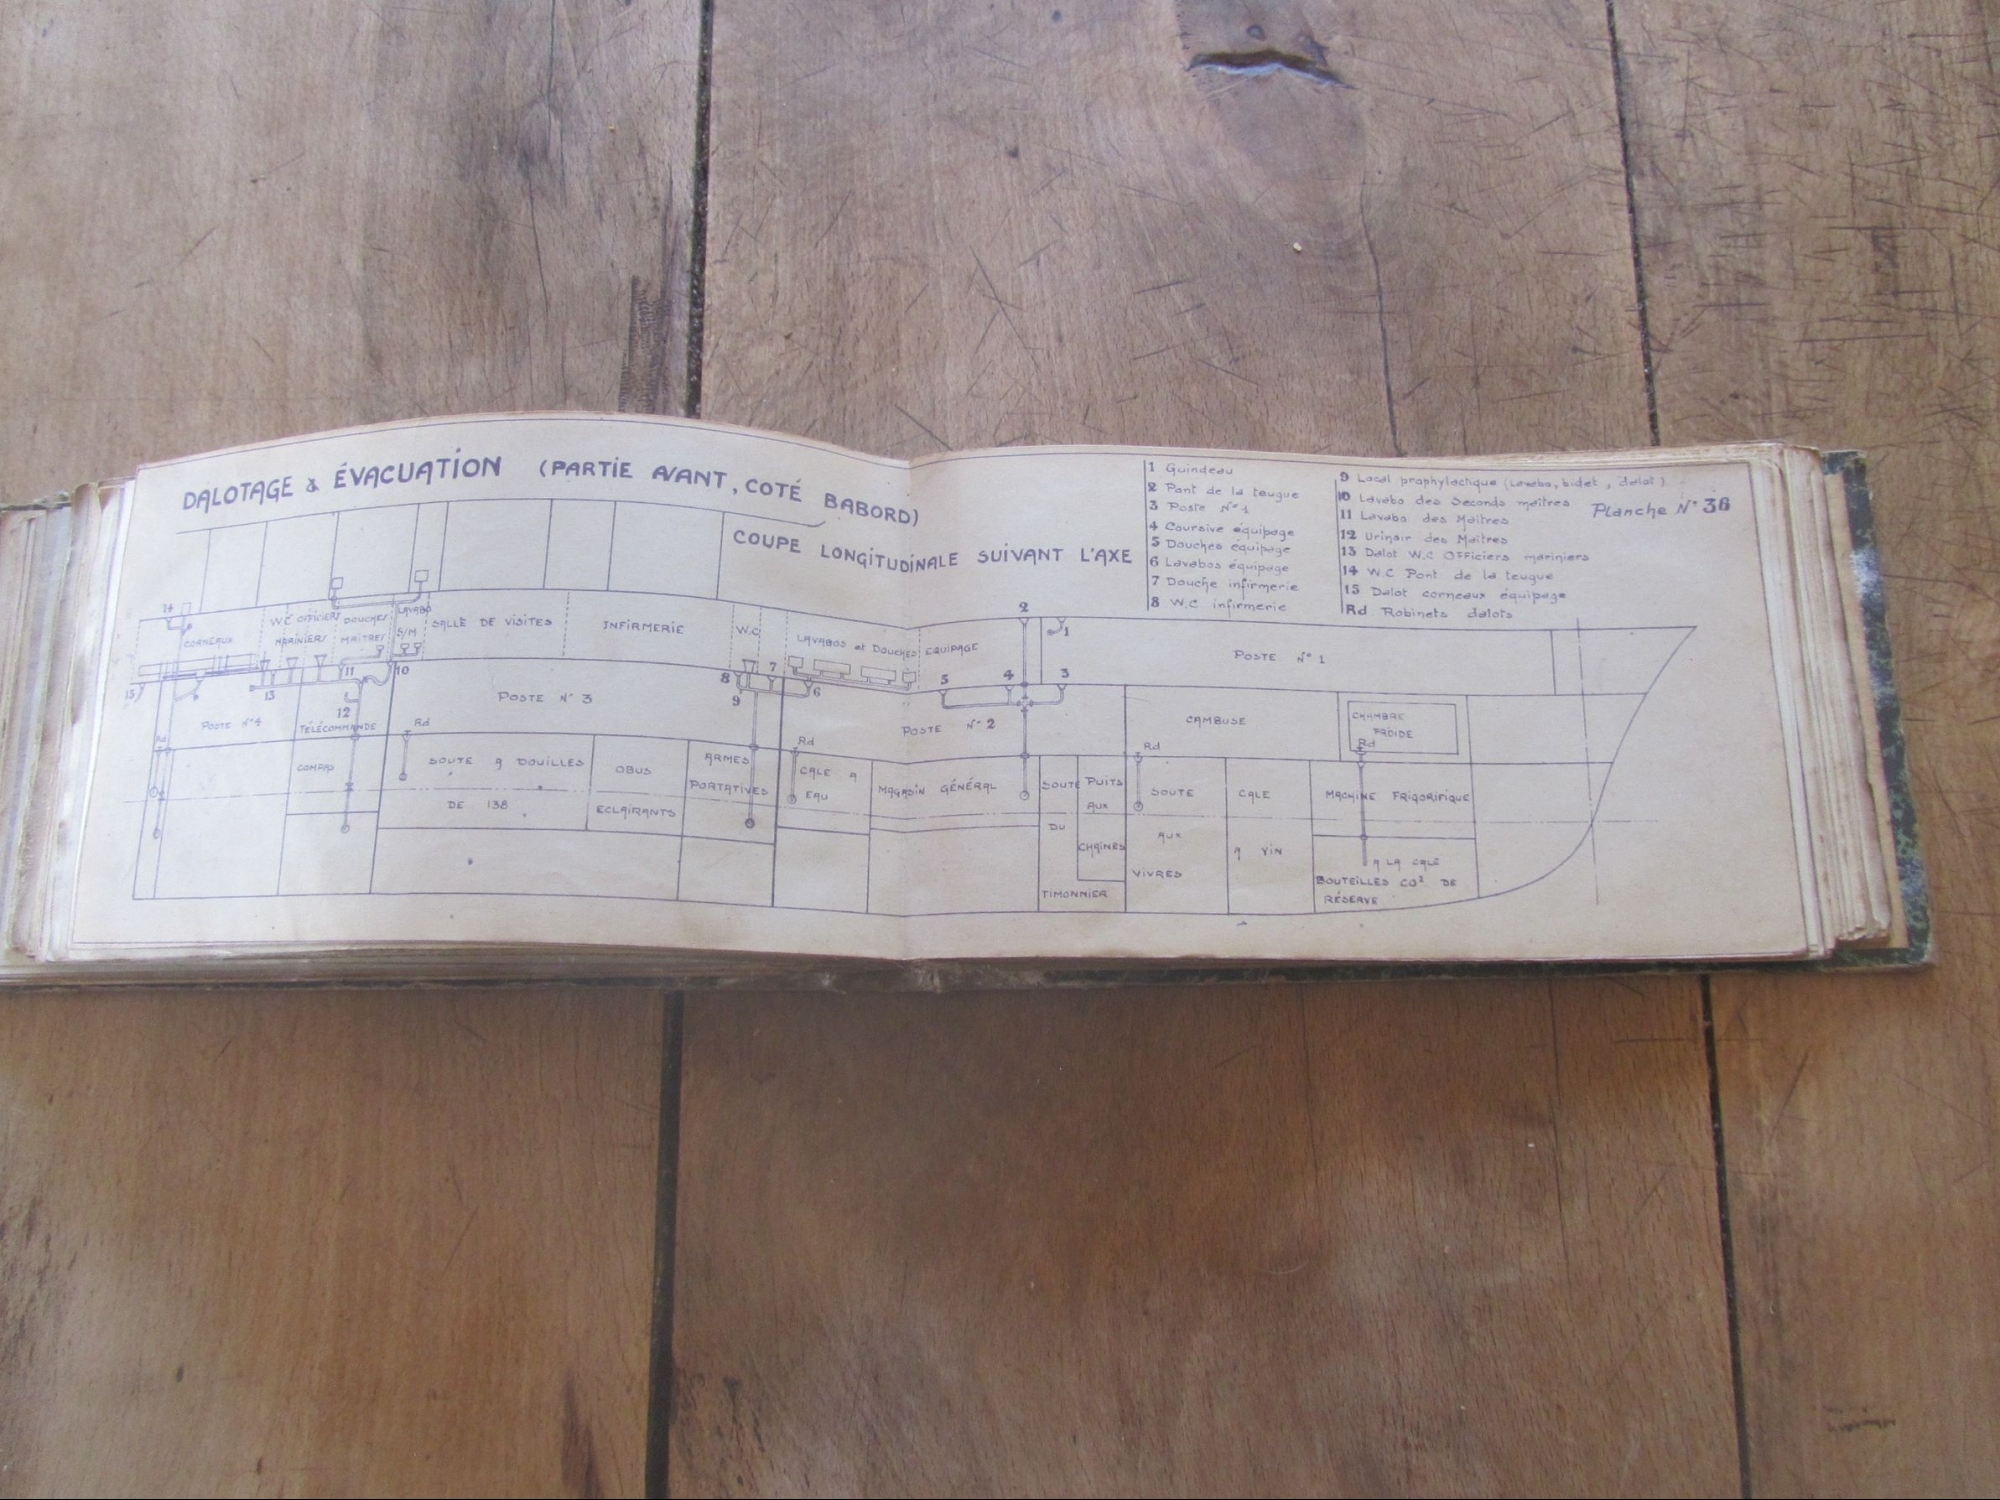 DALOTAGE & ÉVACUATION (PARTIE AVANT, COTÉ BABORD)
COUPE LONGITUDINALE SUIVANT L'AXE
1 Guindeau
2 Pont de la teugue
3 Poste N° 1
4 Coursive équipage
5 Douches équipage
6 Lavabos équipage
7 Douche infirmerie
8 W.C infirmerie
9 Local prophylactique (Lavabo, bidet, dalot)
10 Lavabo des Seconds maîtres
11 Lavabo des Maîtres
12 Urinoir des Maîtres
13 Dalot W.C Officiers mariniers
14 W.C Pont de la teugue
15 Dalot corneaux équipage
Rd Robinets dalots
Planche N° 36
14
CORNEAUX
W.C OFFICIERS
MARINIERS
DOUCHES
MAITRES
LAVABO
S/M
SALLE DE VISITES
INFIRMERIE
W.C
LAVABOS et DOUCHES EQUIPAGE
2
1
POSTE N° 1
15
13
11
10
12
8
7
9
6
5
4
3
POSTE N° 4
TÉLÉCOMMANDE
POSTE N° 3
POSTE N° 2
CAMBUSE
CHAMBRE
FROIDE
Rd
Rd
Rd
Rd
Rd
COMPAS
SOUTE A DOUILLES
DE 138
OBUS
ECLAIRANTS
ARMES
PORTATIVES
CALE A
EAU
MAGASIN GÉNÉRAL
SOUTE
DU
TIMONNIER
PUITS
AUX
CHAINES
SOUTE
AUX
VIVRES
CALE
A VIN
MACHINE FRIGORIFIQUE
A LA CALE
BOUTEILLES CO² DE
RÉSERVE